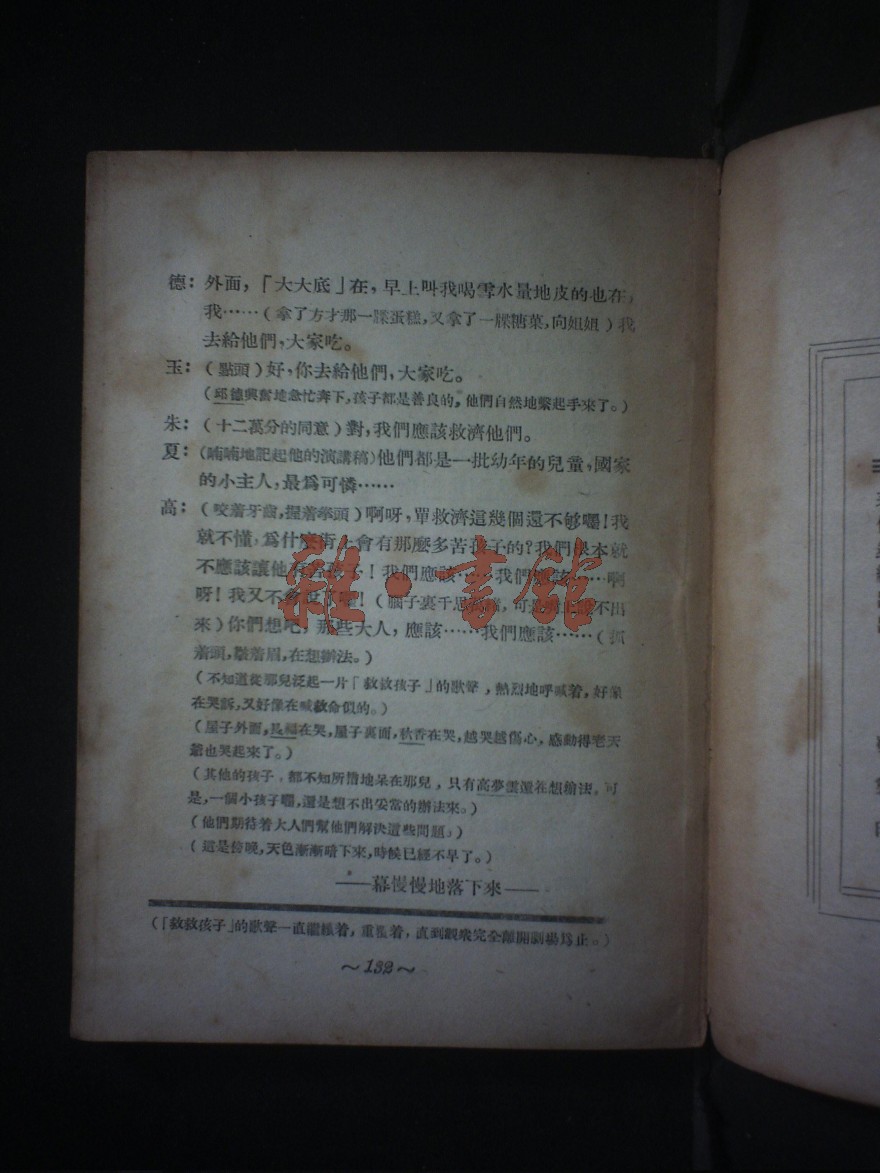 德：外面，「大大底」在，早上叫我喝雪水量地皮的也在，
我……（拿了方才那一牒蛋糕，又拿了一牒糖菓，向姐姐）我
去給他們，大家吃。
玉：（點頭）好，你去給他們，大家吃。
（邱德興奮地急忙奔下，孩子都是善良的，他們自然地繫起手來了。）
朱：（十二萬分的同意）對，我們應該救濟他們。
夏：（喃喃地記起他的演講稿）他們都是一批幼年的兒童，國家
的小主人，最爲可憐……
高：（咬着牙齒，揑着拳頭）啊呀，單救濟這幾個還不够囉！我
就不懂，爲什麼街上會有那麼多苦孩子的？我們根本就
不應該讓他有苦孩子！我們應該……我們應該……啊
呀！我又不會說了囉！（腦子裏千思萬緒，可是嘴上說不出
來）你們想吧，那些大人，應該……我們應該……（抓
着頭，皺着眉，在想辦法。）
（不知道從那兒泛起一片「救救孩子」的歌聲，熱烈地呼喊着，好象
在哭訴，又好像在喊救命似的。）
（屋子外面，長福在哭，屋子裏面，軟香在哭，越哭越傷心，感動得老天
爺也哭起來了。）
（其他的孩子，都不知所措地呆在那兒，只有高夢靈還在想辦法。可
是，一個小孩子囉，還是想不出妥當的辦法來。）
（他們期待着大人們幫他們解決這些問題。）
（這是傍晚，天色漸漸暗下來，時候已經不早了。）
——幕慢慢地落下來——
（「救救孩子」的歌聲一直繼續着，重複着，直到觀衆完全離開劇場爲止。）
～132～
雜·書館